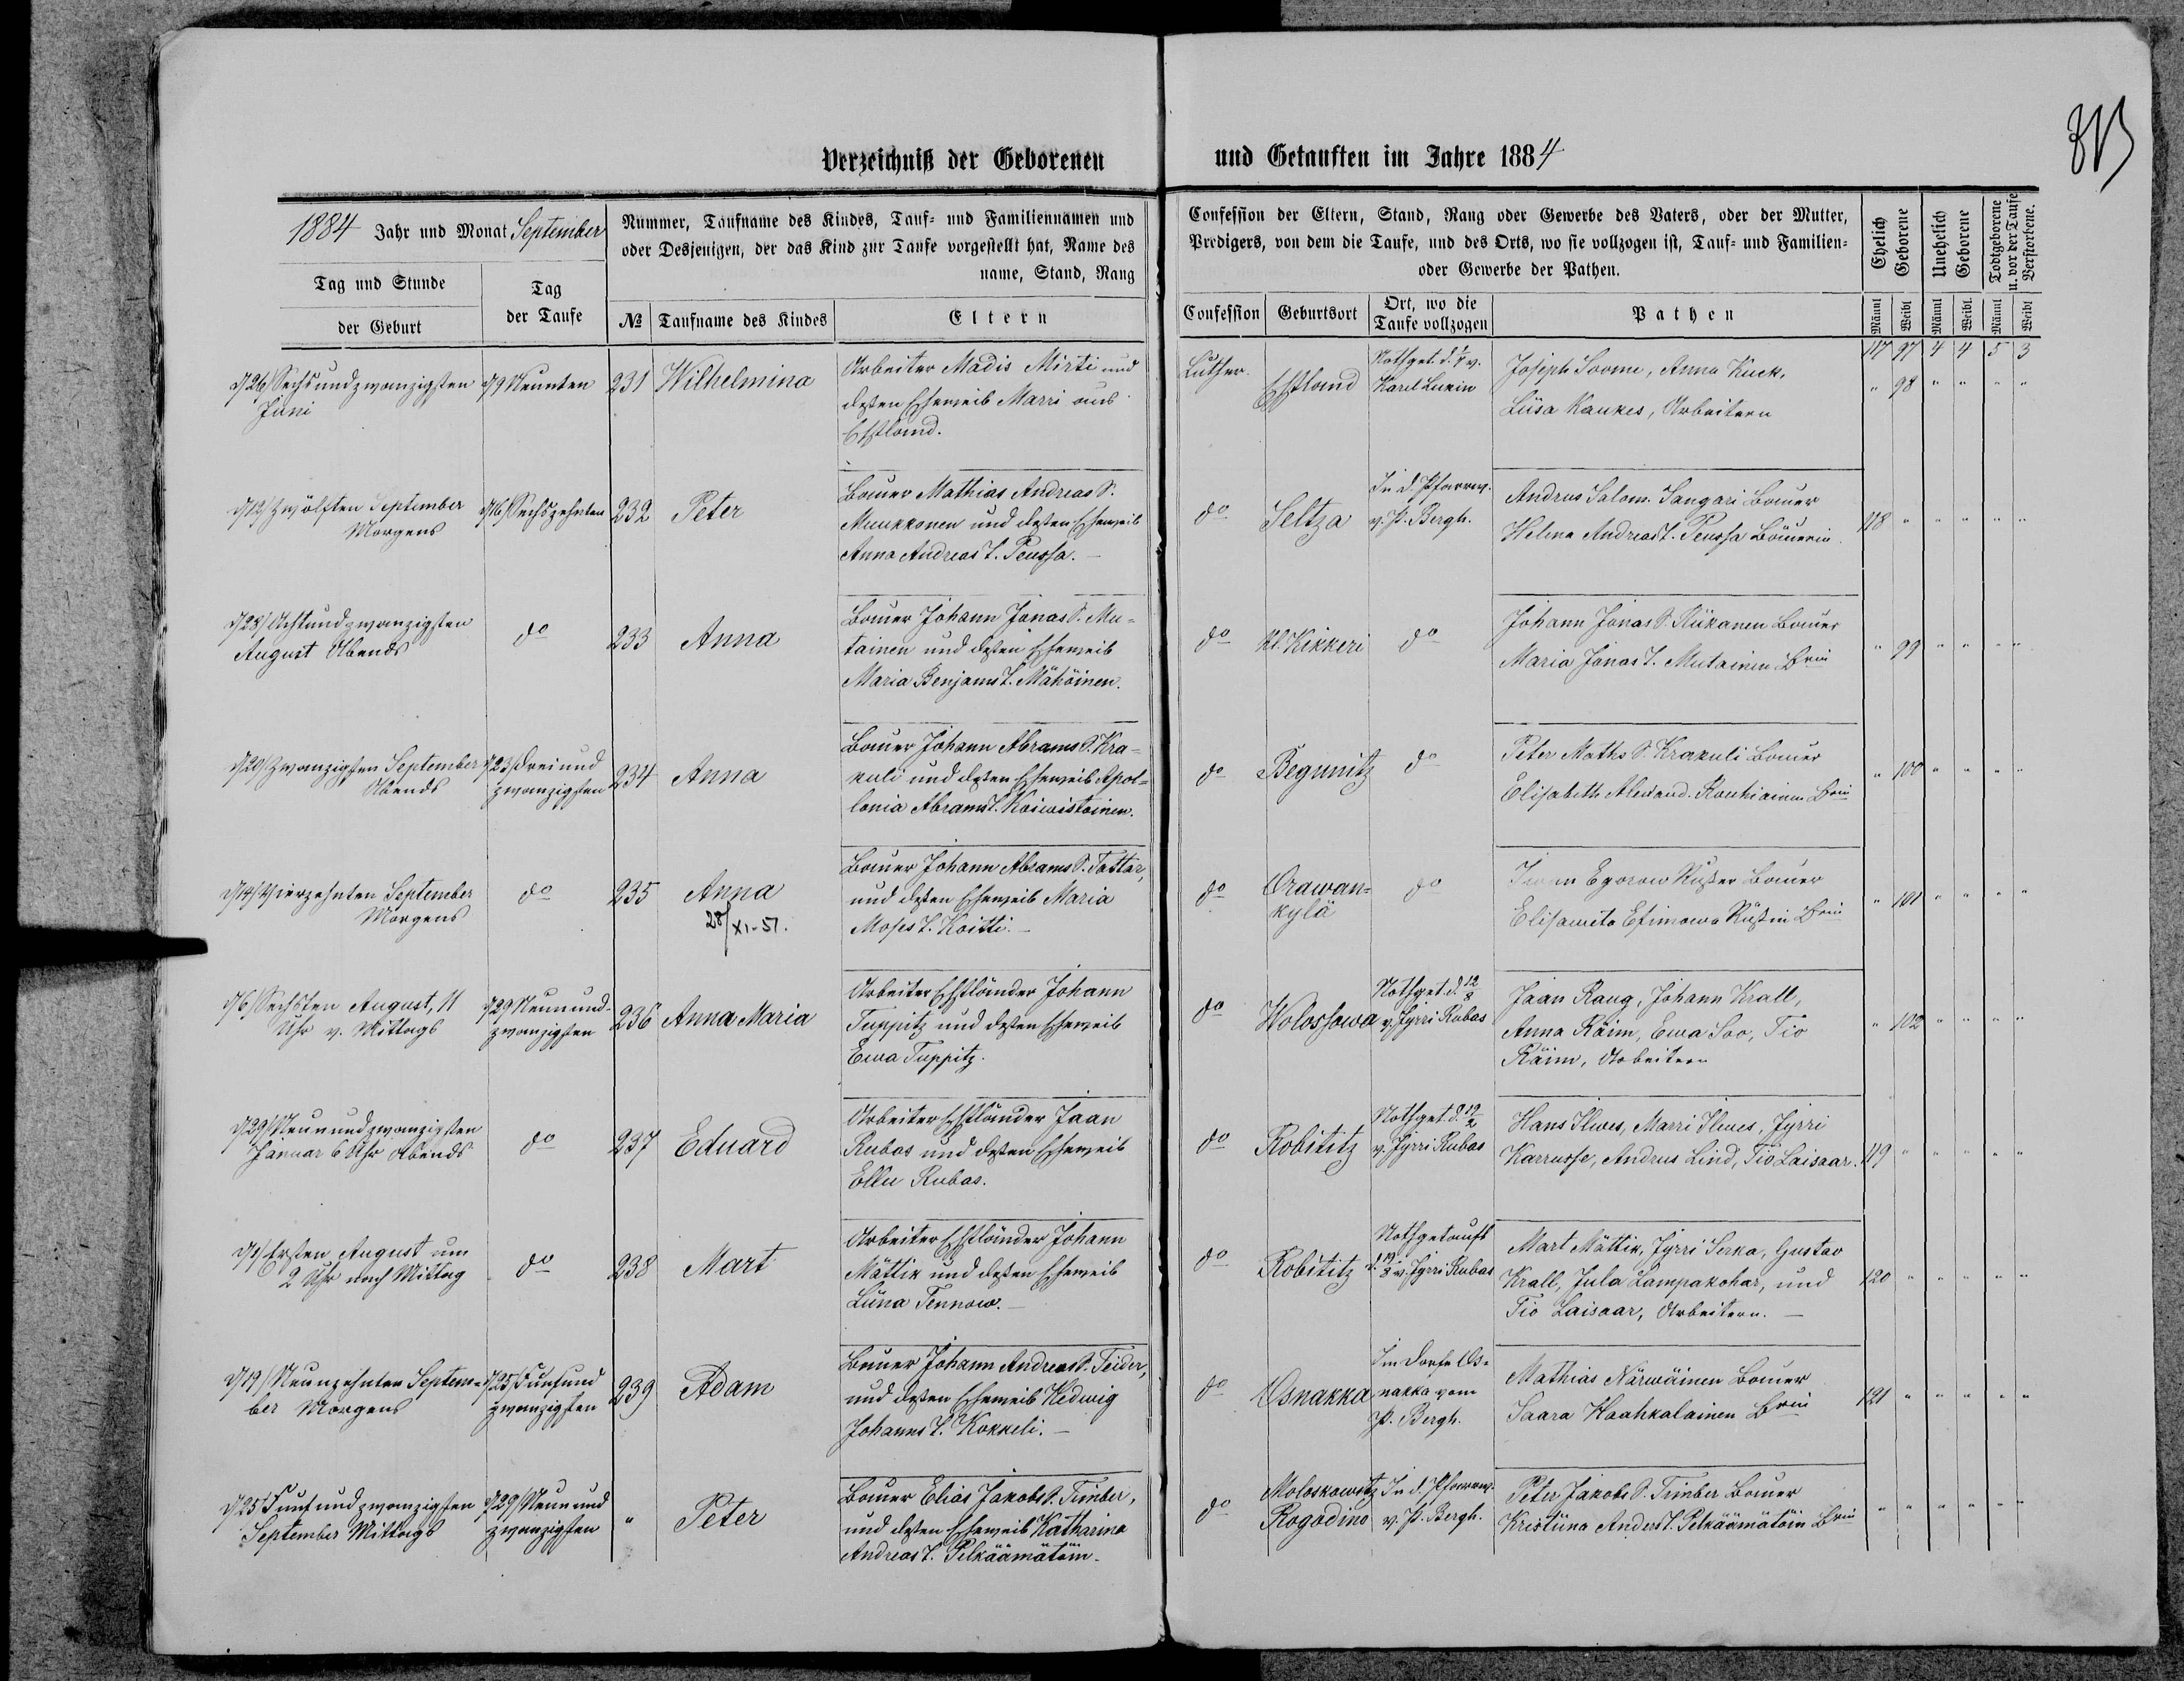 Verzeichniß der Geborenen und Getauften im Jahre 1884
313
1884 Jahr und Monat September
Tag und Stunde
der Geburt
Tag
der Taufe
Nummer, Taufname des Kindes, Tauf- und Familiennamen und
oder Desjenigen, der das Kind zur Taufe vorgestellt hat, Name des
name, Stand, Rang
№ Taufname des Kindes Eltern
Confession der Eltern, Stand, Rang oder Gewerbe des Vaters, oder der Mutter,
Predigers, von dem die Taufe, und des Orts, wo sie vollzogen ist, Tauf- und Familien-
oder Gewerbe der Pathen.
Confession Geburtsort
Ort, wo die
Taufe vollzogen
Pathen
Ehelich
Geborene
Unehelich
Geborene
Todtgeborene
u. vor der Taufe
Verstorbene.
Männl Weibl Männl Weibl. Männl Weibl
117 97 4 4 5 3
d/26/ Sechsundzwanzigsten
Juni
d/9 Neunten
231 Wilhelmina
Arbeiter Madis Mirti und
deßen Eheweib Marri aus
Ehstland.
Luther.
Ehstland
Nothget. d. v.
Karel Lukin
Joseph Soome, Anna Kuck,
Liisa Kaukes, Arbeitern
" 98 " " " "
d/12/ Zwölften September
Morgens
d/16/ Sechszehnten
232 Peter
Bauer Mathias Andreas S.
Muukkonen und deßen Eheweib
Anna Andreas T. Peussa. –
do Seltza
In d. Pfarrw.
v. P. Bergh.
Andrus Salom. Sangari Bauer
Helena Andreas T. Peussa Bäuerin.
118 " " " " "
d/28/ Achtundzwanzigsten
August Abends
do
233 Anna
Bauer Johann Jonas S. Mu-
tainen und deßen Eheweib
Maria Benjams T. Mähöinen.
do Kl. Kikkeri do
Johann Jonas S. Rükanen Bauer
Maria Jonas T. Mutainen Brin
" 99 " " " "
d/20/ Zwanzigsten September
Abends
d/23/ Drei und
zwanzigsten
234 Anna
Bauer Johann Abrams S. Kra-
kuli und deßen Eheweib Apol-
lonia Abrams T. Koiwistoinen.
do Begunitz do
Peter Matths S. Krakuli Bauer
Elisabeth Alexand. Rouhiainen Brin
" 100 " " " "
d/14/ Vierzehnten September
Morgens
do
235 Anna
28/XI-51.
Bauer Johann Abrams S. Tattar,
und deßen Eheweib Maria
Moses T. Koitti. –
do
Orawan-
kylä
do
Iwan Egorow Rußer Bauer
Elisaweta Efimowa Rußin Brin
" 101 " " " "
d/6/ Sechsten August, 11
Uhr v. Mittags
d/29 Neunund-
zwanzigsten
236 Anna Maria
Arbeiter Ehstländer Johann
Tuppitz und deßen Eheweib
Ewa Tuppitz.
do Wolossowa
Nothget. d. 12/8
v. Jyrri Rubas
Jaan Raug, Johann Krall,
Anna Räim, Ewa Soo, Tio
Räim, Arbeitern
" 102 " " " "
d/29/ Neunundzwanzigsten
Januar 6 Uhr Abends
do
237 Eduard
Arbeiter Ehstländer Jaan
Rubas und deßen Eheweib
Ellu Rubas.
do Robititz
Nothget. d. 12/2
v. Jyrri Rubas
Hans Ilwes, Marri Ilwes, Jyrri
Karrusse, Andrus Lind, Tio Laisaar.
119 " " " " "
d/1/ Ersten August um
2 Uhr nach Mittag
do
238 Mart
Arbeiter Ehstländer Johann
Mättik und deßen Eheweib
Liina Tennow. –
do Robititz
Nothgetauft
v. Jyrri Rubas
Mart Mättik, Jyrri Serka, Gustav
Krall, Jula Lampakohar, und
Tio Laisaar, Arbeitern. –
120 " " " " "
d/19/ Neunzehnten Septem-
ber Morgens
d/25/ Fünfund
zwanzigsten
239 Adam
Bauer Johann Andreas S. Teider,
und deßen Eheweib Hedwig
Johanns T. Kokkeli. –
do Osnakka
Im Dorfe Os-
nakka vom
P. Bergh.
Mathias Närwäinen Bauer
Saara Haahkalainen Brin
121 " " " " "
d/25 Fünfundzwanzigsten
September Mittags
d/29/ Neunund
zwanzigsten
" Peter
Bauer Elias Jakobs S. Timber,
und deßen Eheweib Katharina
Andreas T. Pelkäämätöin.
do
Moloskowitz
Rogodino
In d. Pfarrw.
v. P. Bergh.
Peter Jakobs S. Timber Bauer
Kristiina Anders T. Pelkäämätöin Brin
" " " " " "